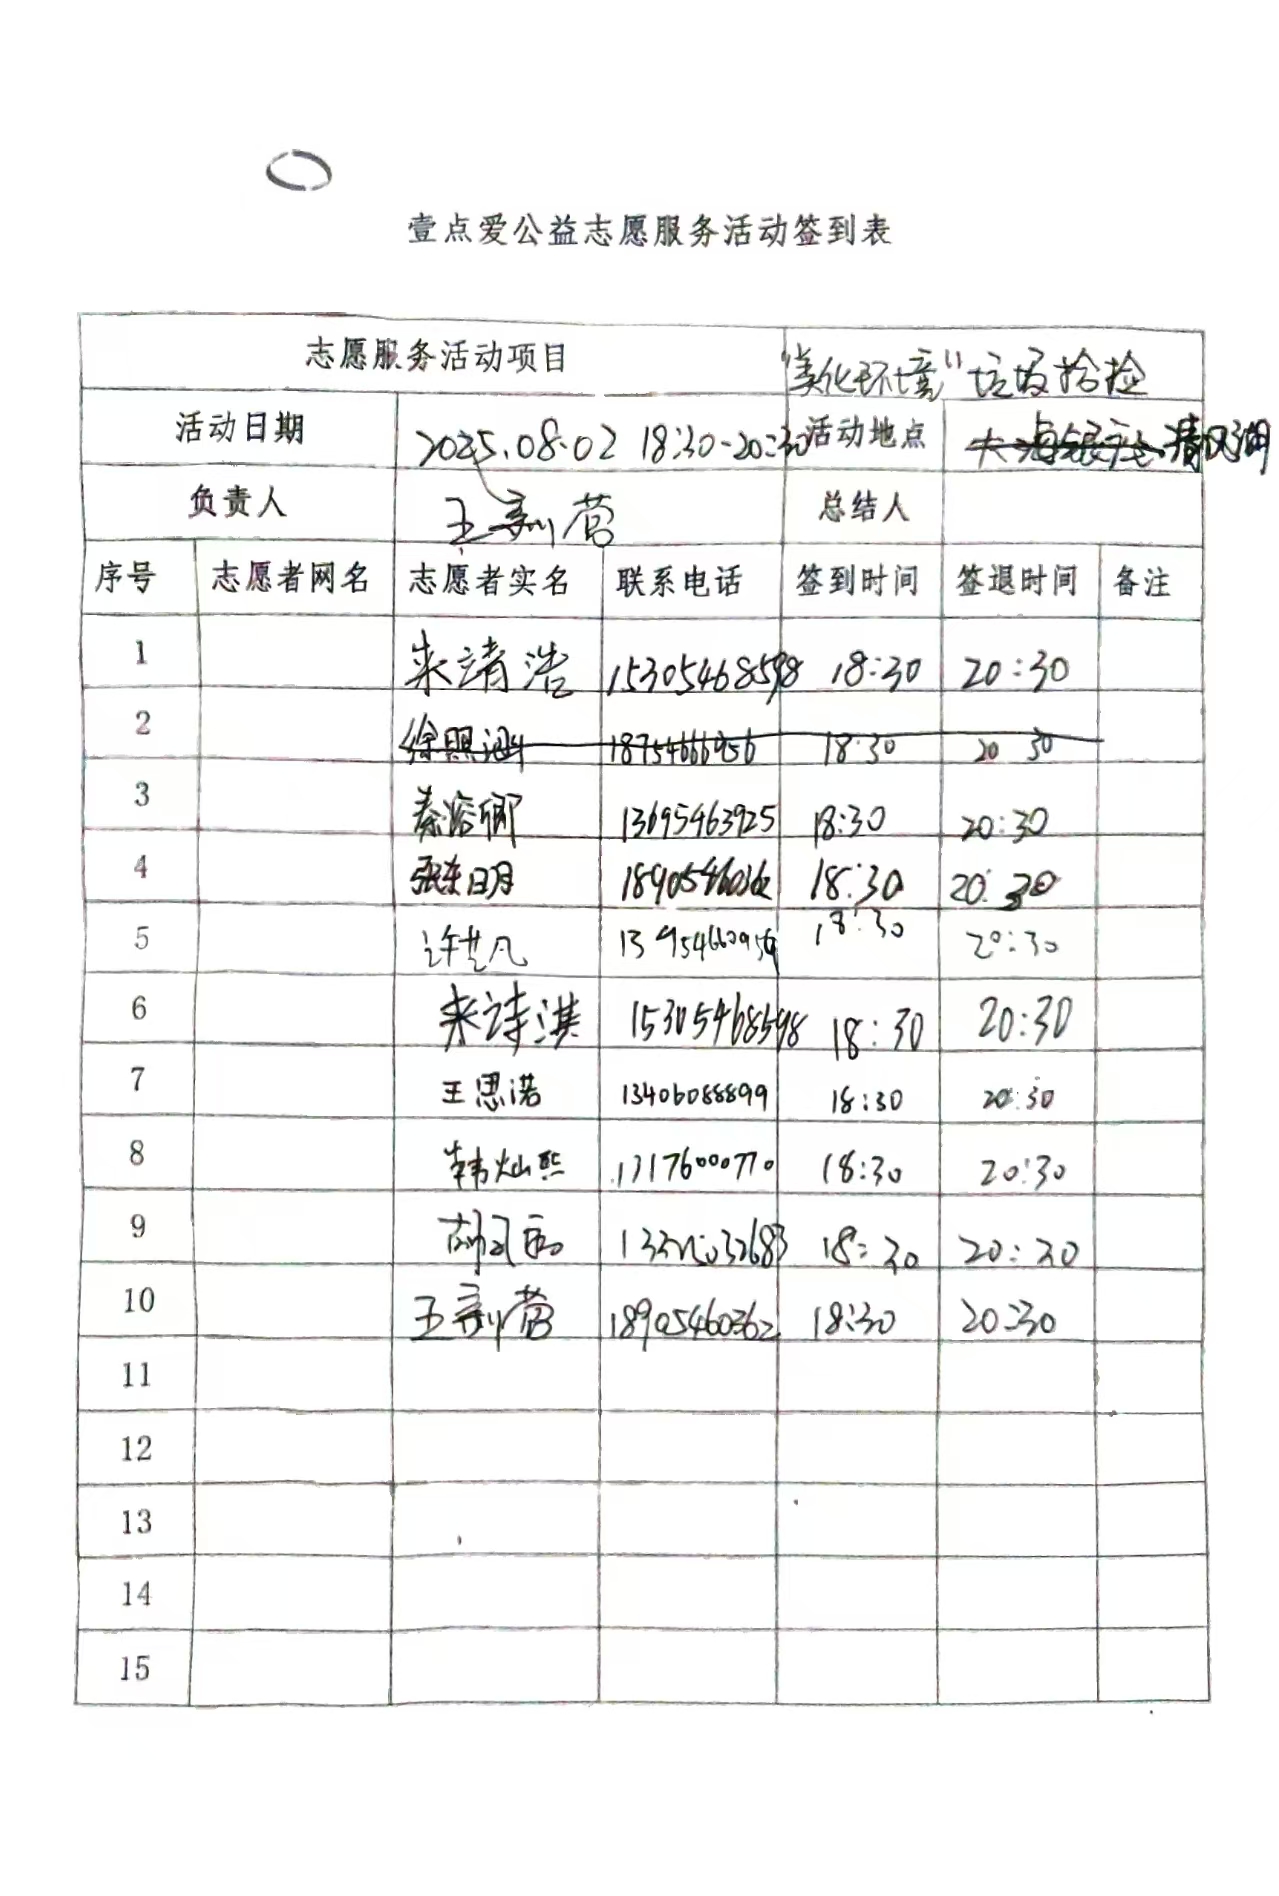 壹点爱公益志愿服务活动签到表
志愿服务活动项目 "美化环境"垃圾捡捡
活动日期 2025.08.02 18:30-20:30 活动地点 清风湖
负责人 王 营 总结人
序号 志愿者网名 志愿者实名 联系电话 签到时间 签退时间 备注
1 来靖浩 15305468598 18:30 20:30
2 徐照涵 18754666956 18:30 20 30
3 秦溶卿 13695463925 18:30 20:30
4 张东明 18905460362 18:30 20:30
5 许芝凡 13954660956 18:30 20:30
6 来诗淇 15305468598 18:30 20:30
7 王思诺 13406088899 18:30 20:30
8 韩灿熙 13176000770 18:30 20:30
9 18:30 20:30
10 王 营 18905460362 18:30 20:30
11
12
13
14
15